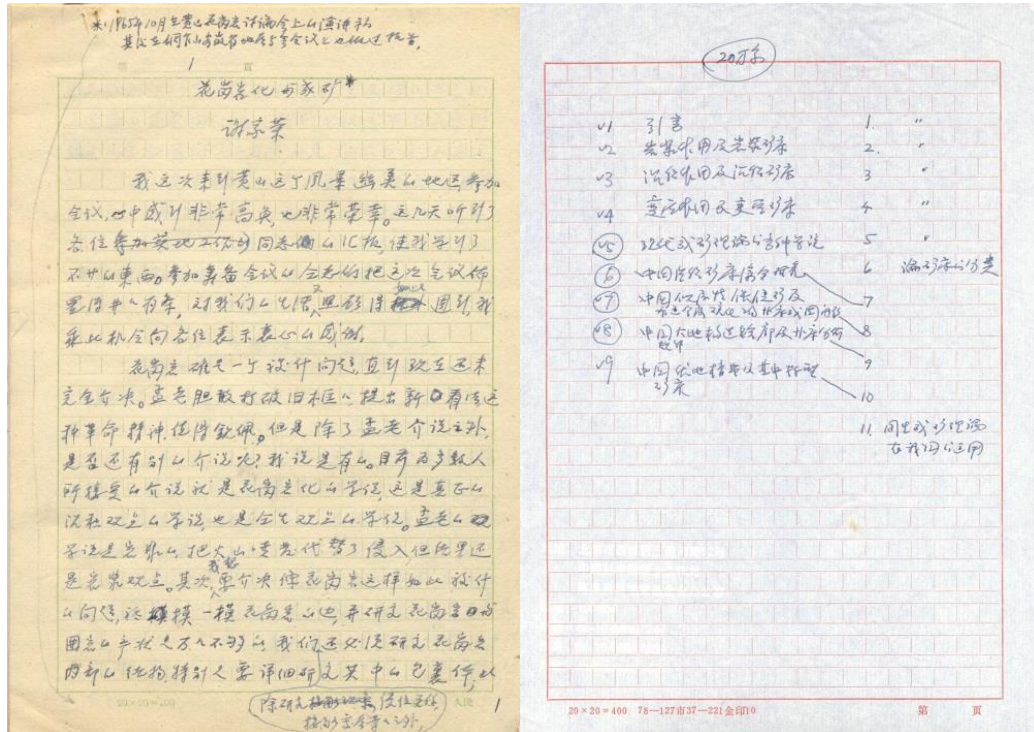 ※:1965年10月在黄山花岗岩讨论会上的演讲稿
第 1 页
花岗岩化与成矿*
谢家荣
我这次来到黄山这个风景幽美的地区参加
会议,心中感到非常高兴,也非常荣幸。这几天听到了
各位同志们的汇报,使我学到了
不少的东西。参加筹备会议的同志们把这次会议布
置得井井有条,对我们的生活又照顾得如此周到,我
乘此机会向各位表示衷心的感谢。
花岗岩确是一个复什问题,直到现在还未
完全介决。孟老胆敢打破旧框框提出新看法这
种革命精神,值得钦佩。但是除了孟老介说之外,
是否还有别的介说呢?我说是有的。目前为多数人
所接受的介说就是花岗岩化的学说,这是真正的
沉积观点的学说,也是全生观点的学说。孟老的
学说是岩浆的,把火山喷发代替了侵入但结果还
是岩浆观点。其次我想要介决像花岗岩这样如此复什
的问题,只摸一摸花岗岩的边,并研究花岗岩的
围岩的产状是万万不够的,我们还必须研究花岗岩
内部的结构特别是要详细研究其中的包裹体,以
除研究
20×20=400
1
20万字
√1 引言 1. 〃
√2 岩浆作用及岩浆矿床 2. 〃
√3 沉积作用及沉积矿床 3 〃
√4 变质作用及变质矿床 4 〃
√5 现代成矿理论与各种学说 5 〃
6 中国 6 论矿床的分类
√7 中国 7
√8 中国大地构造 8
√9 中国 9
矿床 10
11. 同生成矿理论
在我国的运用
20×20=400 78—127市37—221金印10 第 页